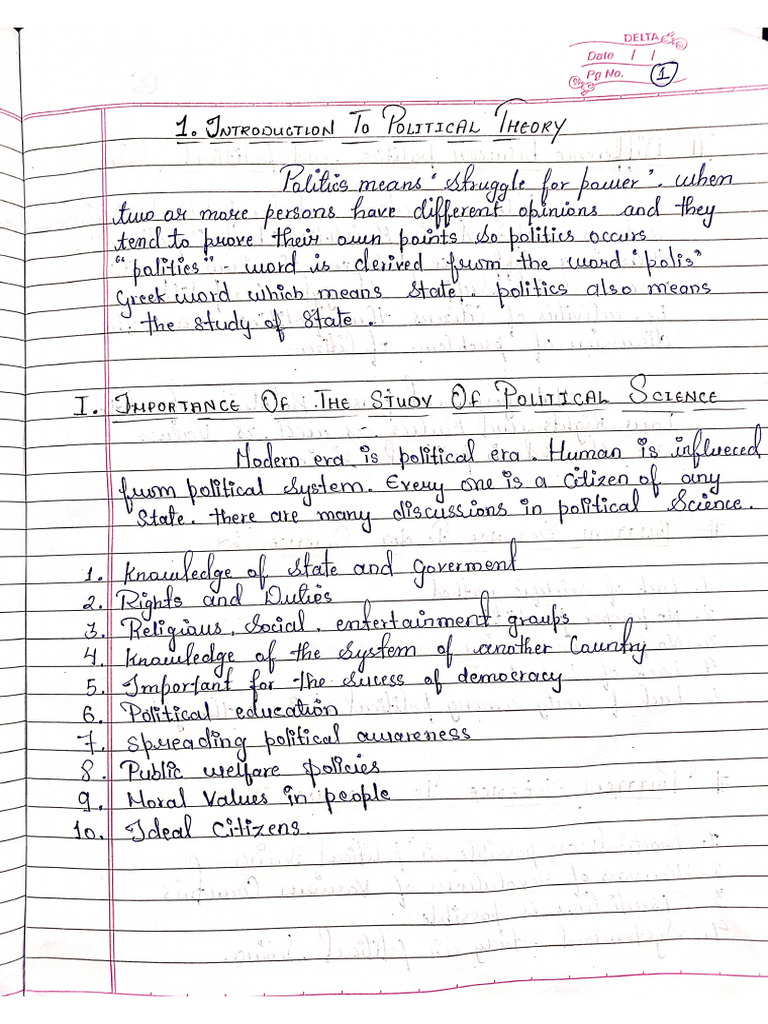 DELTA
Date / /
Pg No. 1
1. INTRODUCTION TO POLITICAL THEORY
Politics means "struggle for power". when
two or more persons have different opinions and they
tend to prove their own points so politics occurs
"politics" - word is derived from the word "polis"
Greek word which means State. politics also means
the study of State.
I. IMPORTANCE OF THE STUDY OF POLITICAL SCIENCE
Modern era is political era. Human is influeced
from political system. Every one is a citizen of any
State. there are many discussions in political Science.
1. Knowledge of state and goverment
2. Rights and Duties
3. Religious, Social, entertainment groups
4. Knowledge of the system of another Country
5. Important for the sucess of democracy
6. Political education
7. Spreading political awareness
8. Public welfare policies
9. Moral Values in people
10. Ideal Citizens.